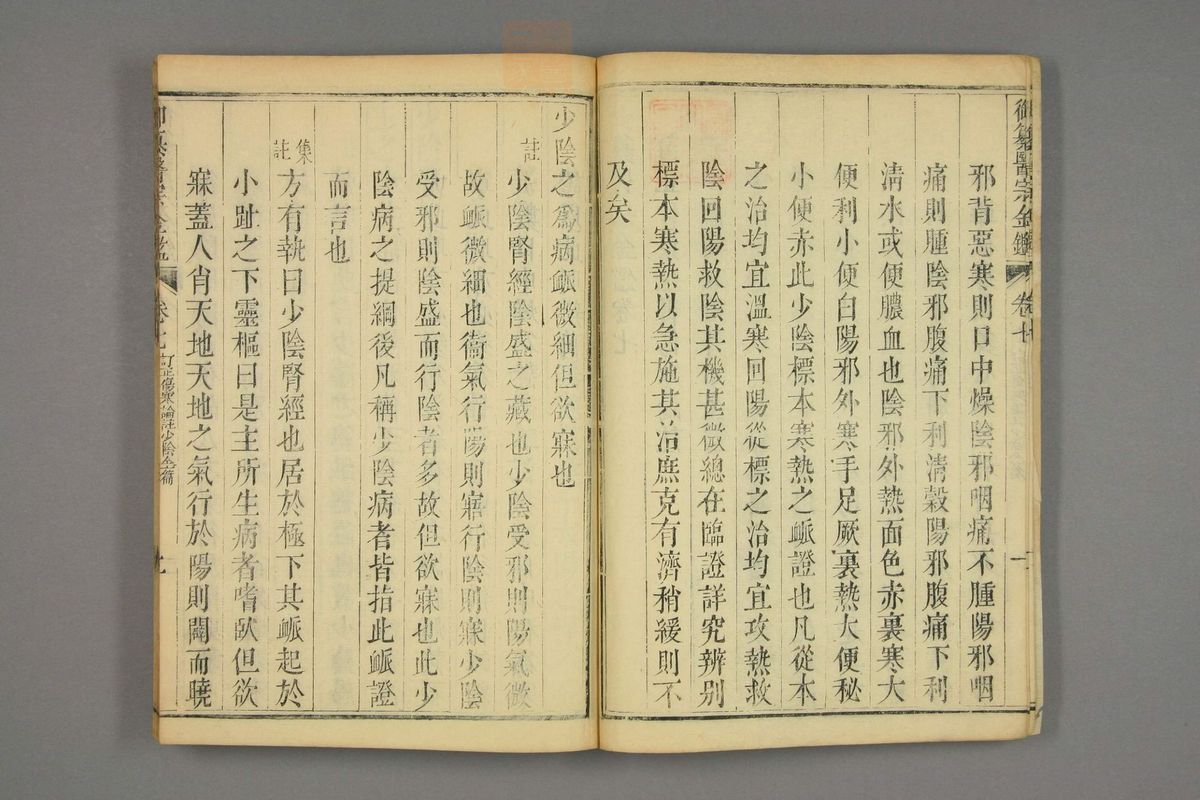 御纂醫宗金鑑 卷七
邪背惡寒則口中燥陰邪咽痛不腫陽邪咽
痛則腫陰邪腹痛下利淸穀陽邪腹痛下利
淸水或便膿血也陰邪外熱面色赤裏寒大
便利小便白陽邪外寒手足厥裏熱大便秘
小便赤此少陰標本寒熱之脈證也凡從本
之治均宜溫寒回陽從標之治均宜攻熱救
陰回陽救陰其機甚微總在臨證詳究辨别
標本寒熱以急施其治庶克有濟稍緩則不
及矣
少陰之爲病脈微細但欲寐也
註
少陰腎經陰盛之藏也少陰受邪則陽氣微
故脈微細也衞氣行陽則寤行陰則寐少陰
受邪則陰盛而行陰者多故但欲寐也此少
陰病之提綱後凡稱少陰病者皆指此脈證
而言也
集註
方有執曰少陰腎經也居於極下其脈起於
小趾之下靈樞曰是主所生病者嗜臥但欲
寐蓋人肖天地天地之氣行於陽則闢而曉
訂正傷寒論註少陰全篇